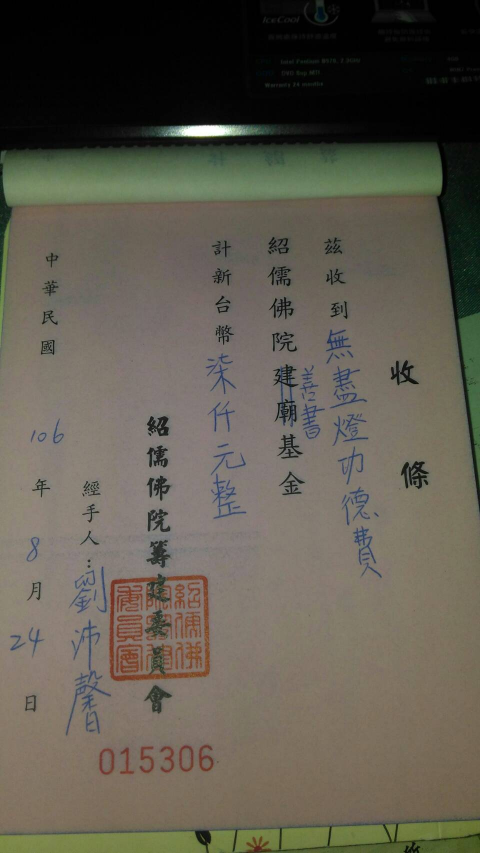 IceCool
Warranty 24 months
收條
茲收到無盡燈功德費
紹儒佛院建廟基金
善書
計新台幣柒仟元整
紹儒佛院籌建委員會
經手人：劉沛馨
中華民國106年8月24日
015306